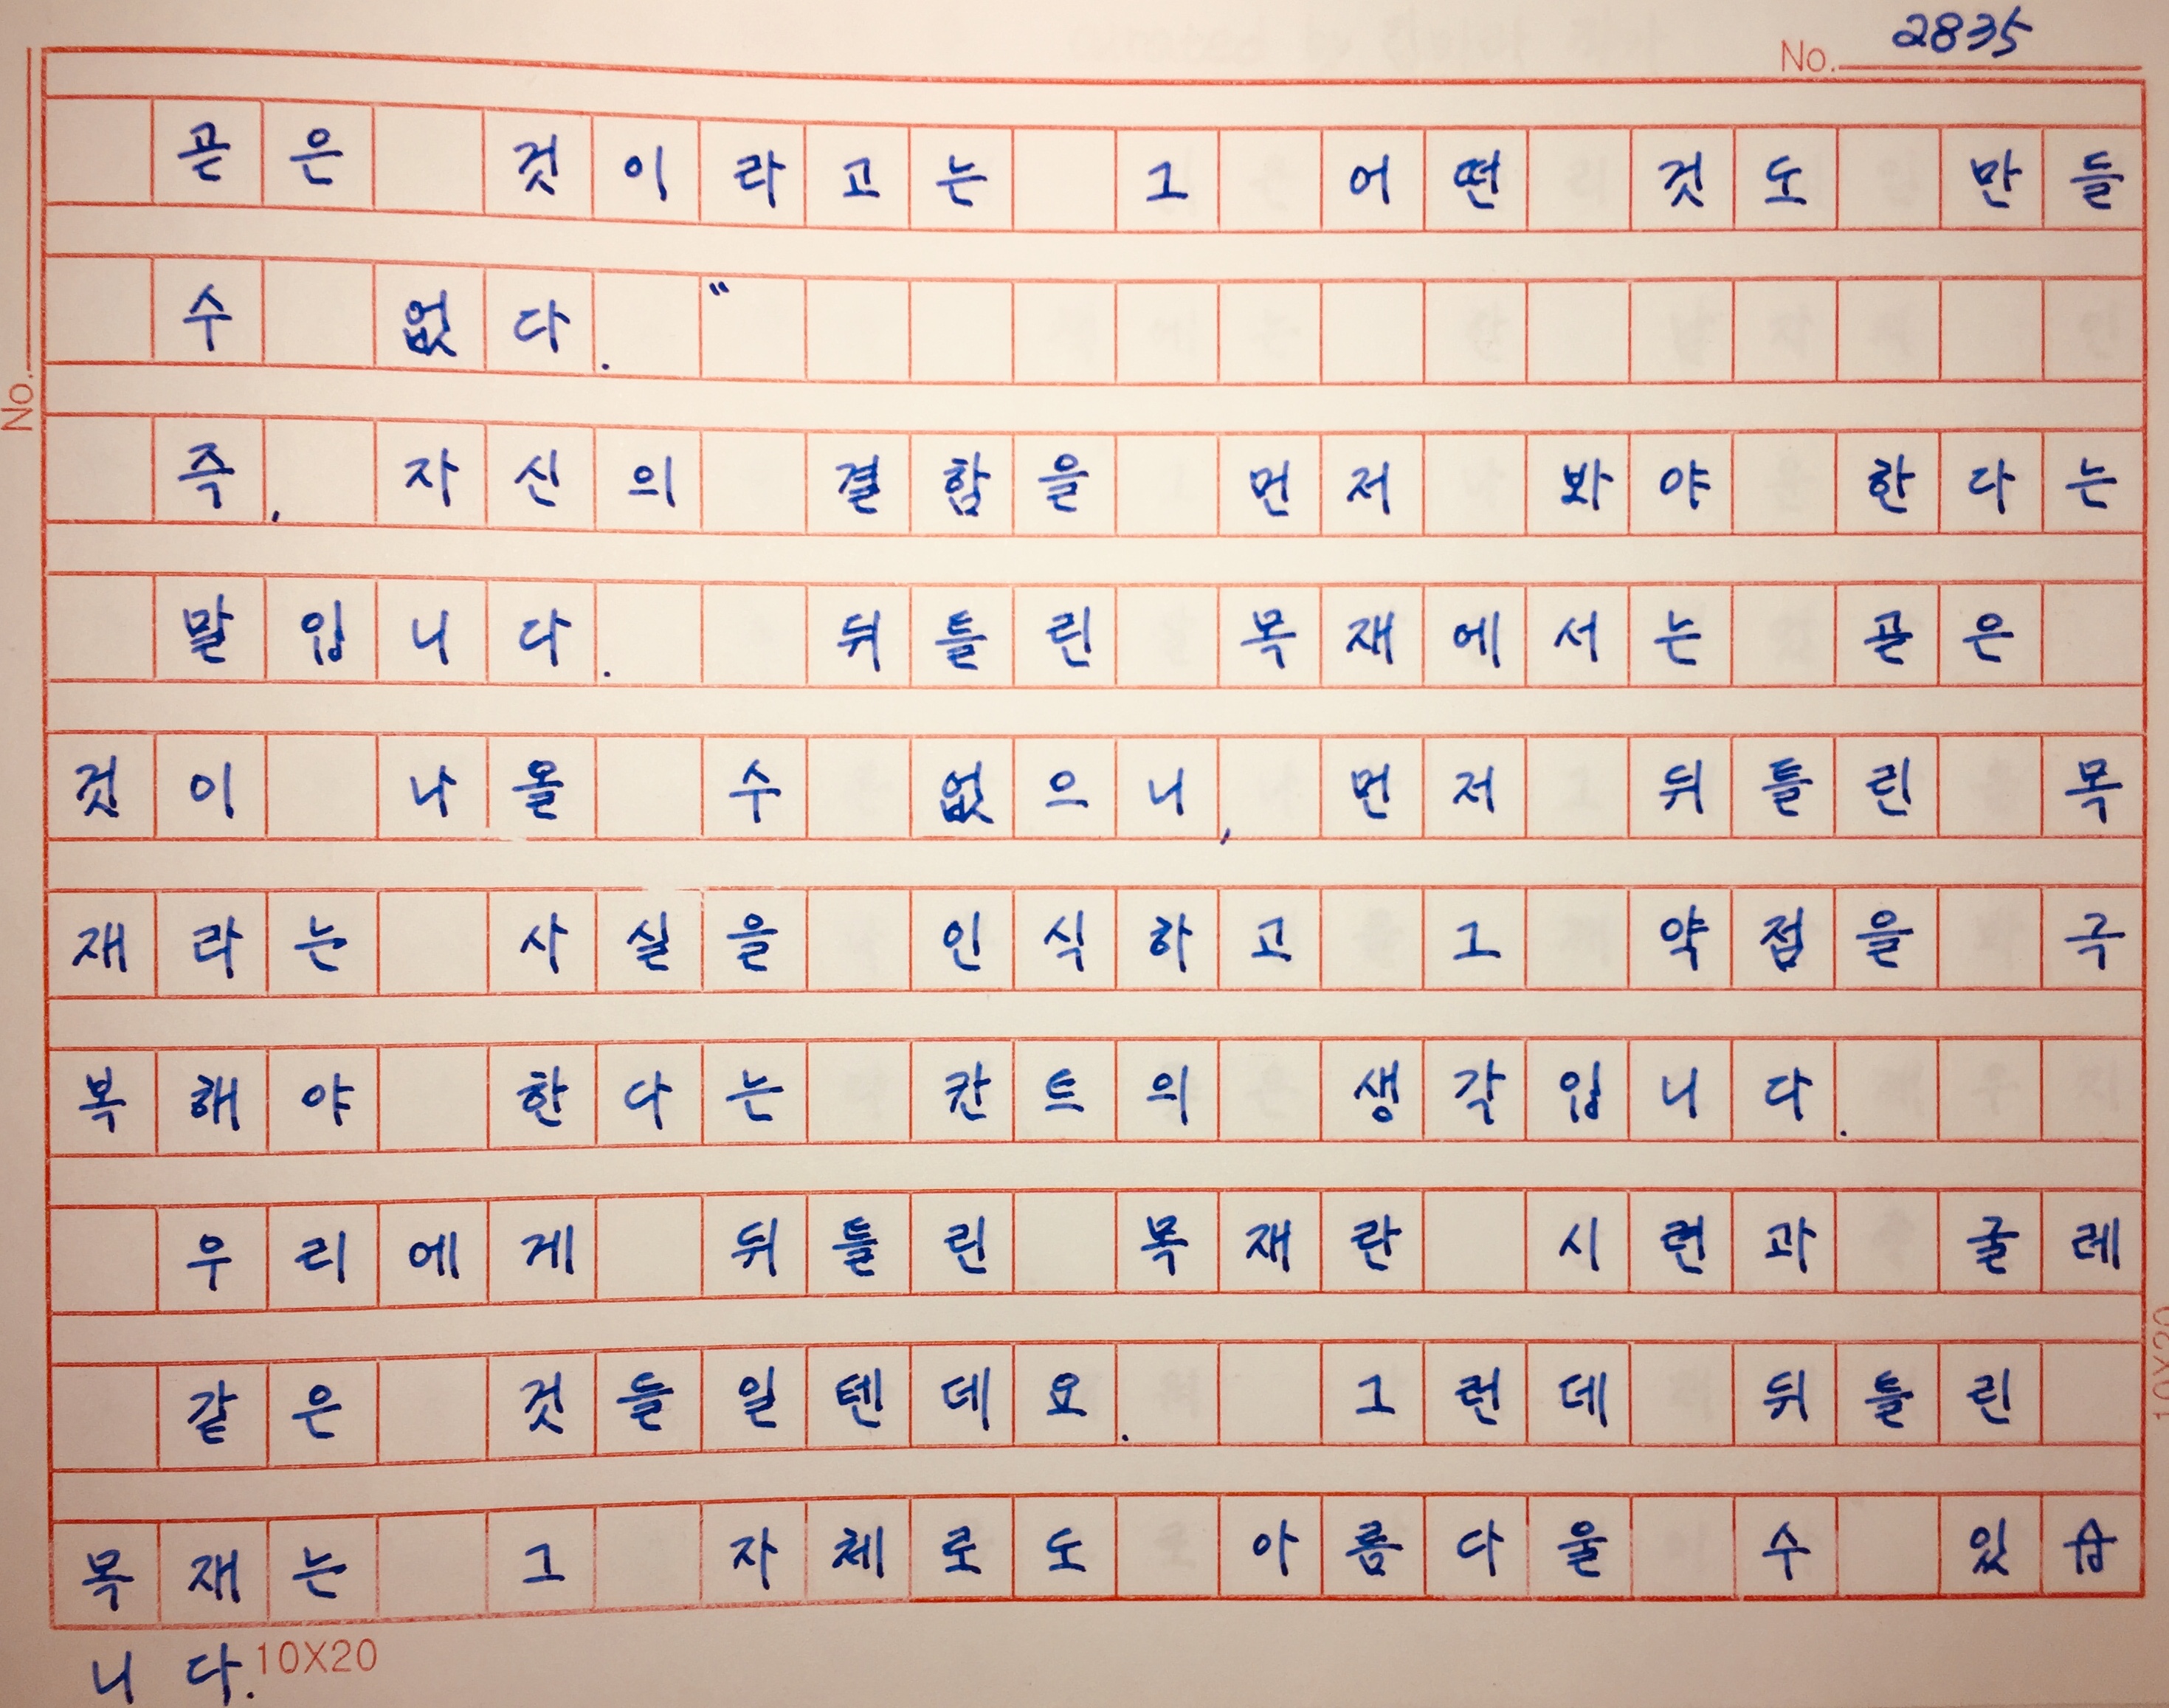 No. 2835
곧은 것이라고는 그 어떤 것도 만들
수 없다."
즉, 자신의 결함을 먼저 봐야 한다는
말입니다. 뒤틀린 목재에서는 곧은
것이 나올 수 없으니, 먼저 뒤틀린 목
재라는 사실을 인식하고 그 약점을 극
복해야 한다는 칸트의 생각입니다.
우리에게 뒤틀린 목재란 시련과 굴레
같은 것들일텐데요. 그런데 뒤틀린
목재는 그 자체로도 아름다울 수 있습
니다.
10X20
No.
10X20